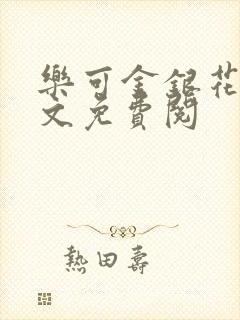 樂可金銀花
文免費閱
熱田壽